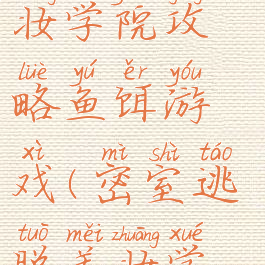 妆学院攻
lüè yú ěr yóu
略鱼饵游
xì mì shì táo
戏(密室逃
tuō měi zhuāng xué
脱美妆学